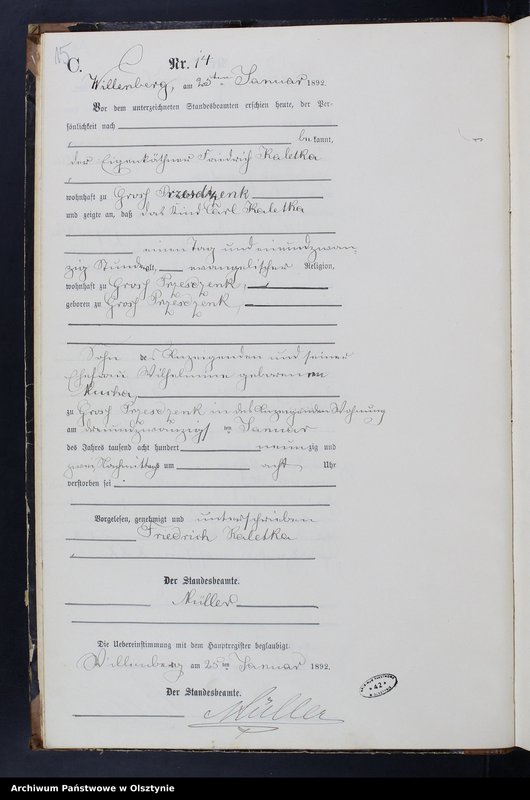 15
C.
Nr. 14
Willenberg, am 25ten Januar 1892.
Vor dem unterzeichneten Standesbeamten erschien heute, der Per-
sönlichkeit nach
bekannt,
der Eigenkäthner Friedrich Kaletka
wohnhaft zu Groß Przesdzenk
und zeigte an, daß das Kind Carl Kaletka
einen Tag und einundzwan-
zig Stunden alt, evangelischer Religion,
wohnhaft zu Groß Przesdzenk,
geboren zu Groß Przesdzenk,
Sohn des Anzeigenden und seiner
Ehefrau Wilhelmine geborenen
zu Groß Przesdzenk in des Anzeigenden Wohnung
am dreiundzwanzigsten Januar
des Jahres tausend acht hundert neunzig und
zwei Nachmittags um acht Uhr
verstorben sei
Vorgelesen, genehmigt und unterschrieben
Friedrich Kaletka
Der Standesbeamte.
Müller
Die Uebereinstimmung mit dem Hauptregister beglaubigt.
Willenberg am 25ten Januar 1892.
Der Standesbeamte.
Müller
42
Archiwum Państwowe w Olsztynie